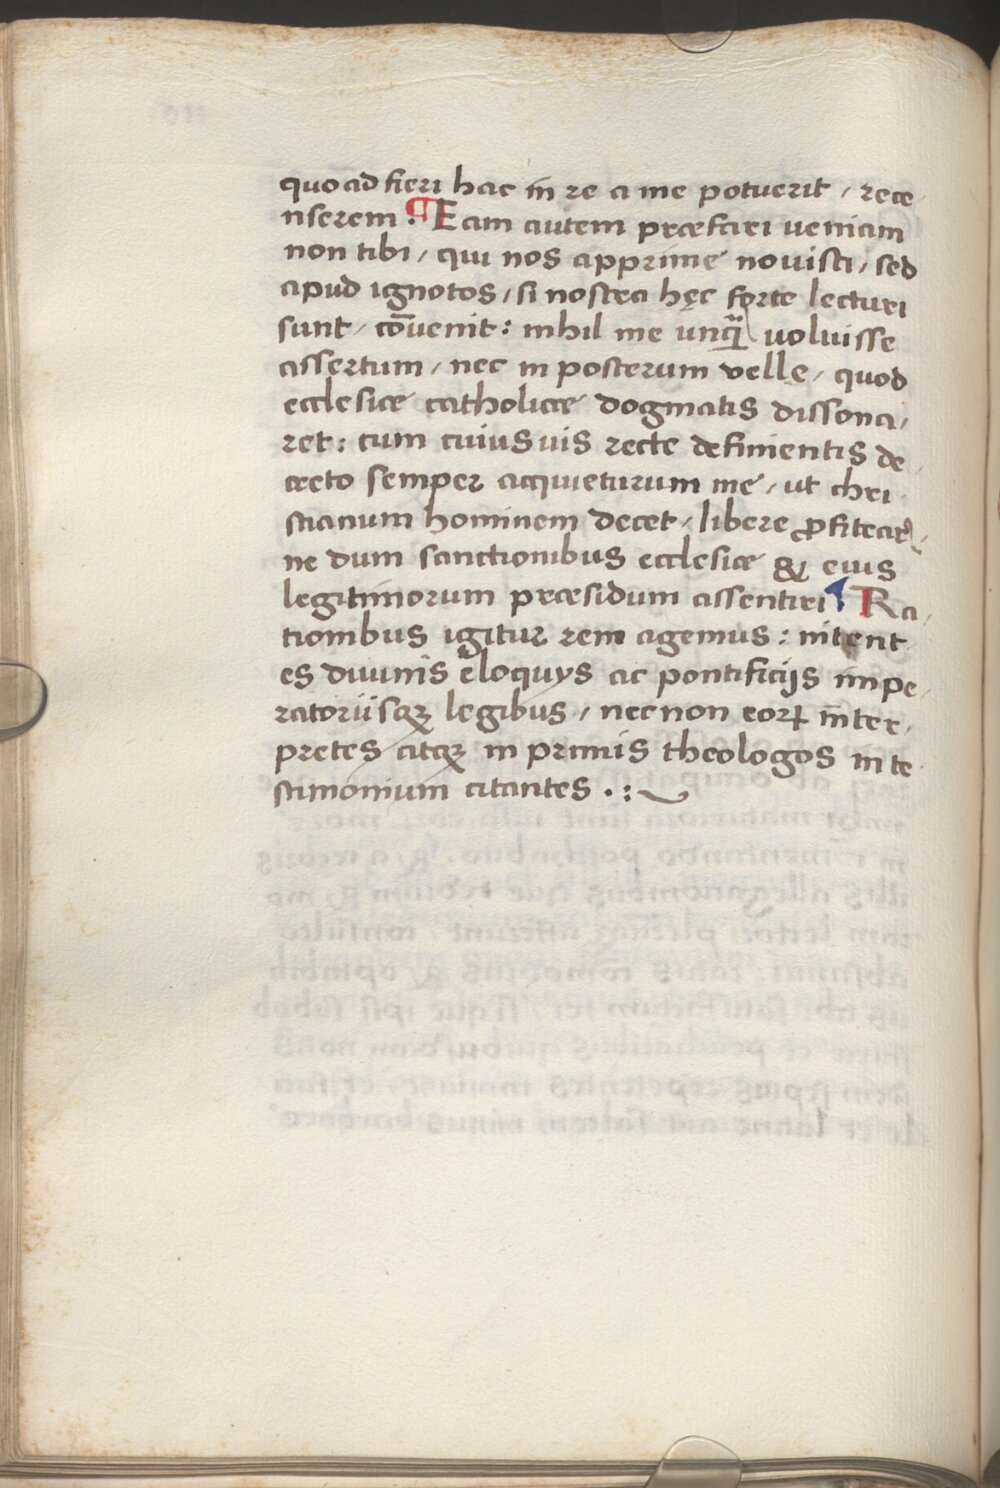 quoad fieri hac in re a me potuerit / rece
nserem . ¶ Eam autem præfari ueniam
non tibi / qui nos apprime nouisti / sed
apud ignotos / si nostra hęc forte lecturi
sunt / cōuenit : nihil me unq̃ uoluisse
assertum / nec in posterum velle / quod
ecclesiæ catholicæ dogmatis dissona/
ret : cum cuiusuis recte definientis de
creto semper acquieturum me / ut chri
stianum hominem decet / libere ꝓfitear /
ne dum sanctionibus ecclesiæ & eius
legitimorum præsidum assentiri ¶ Ra
tionibus igitur rem agemus : nitent
es diuinis eloquijs ac pontificijs impe
ratoriisqꝫ legibus / necnon eoꝝ inter
pretes atqꝫ in primis theologos in te
stimonium citantes . :